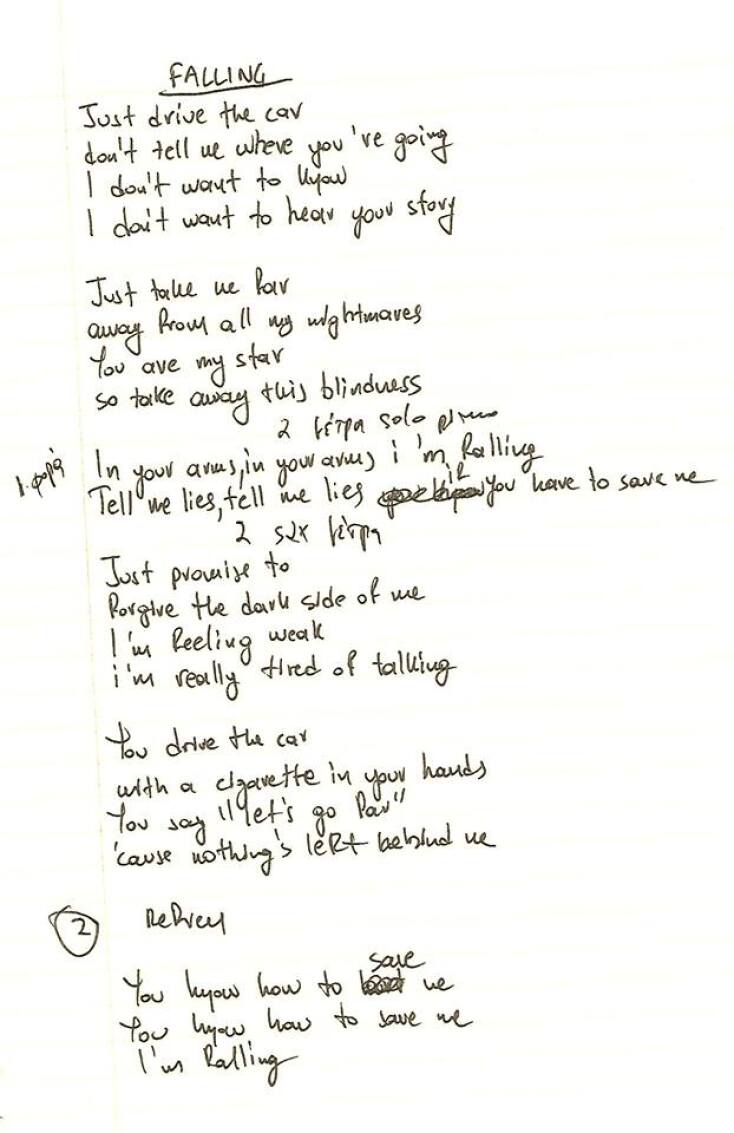 FALLING
Just drive the car
don't tell me where you're going
I don't want to know
I don't want to hear your story
Just take me far
away from all my nightmares
You are my star
so take away this blindness
2 μέτρα solo
1 φορά
In your arms, in your arms i'm falling
Tell me lies, tell me lies if you have to save me
2 μέτρα
Just promise to
forgive the dark side of me
I'm feeling weak
i'm really tired of talking
You drive the car
with a cigarette in your hands
You say "let's go far"
'cause nothing's left behind me
2 Refren
You know how to save me
You know how to save me
I'm falling